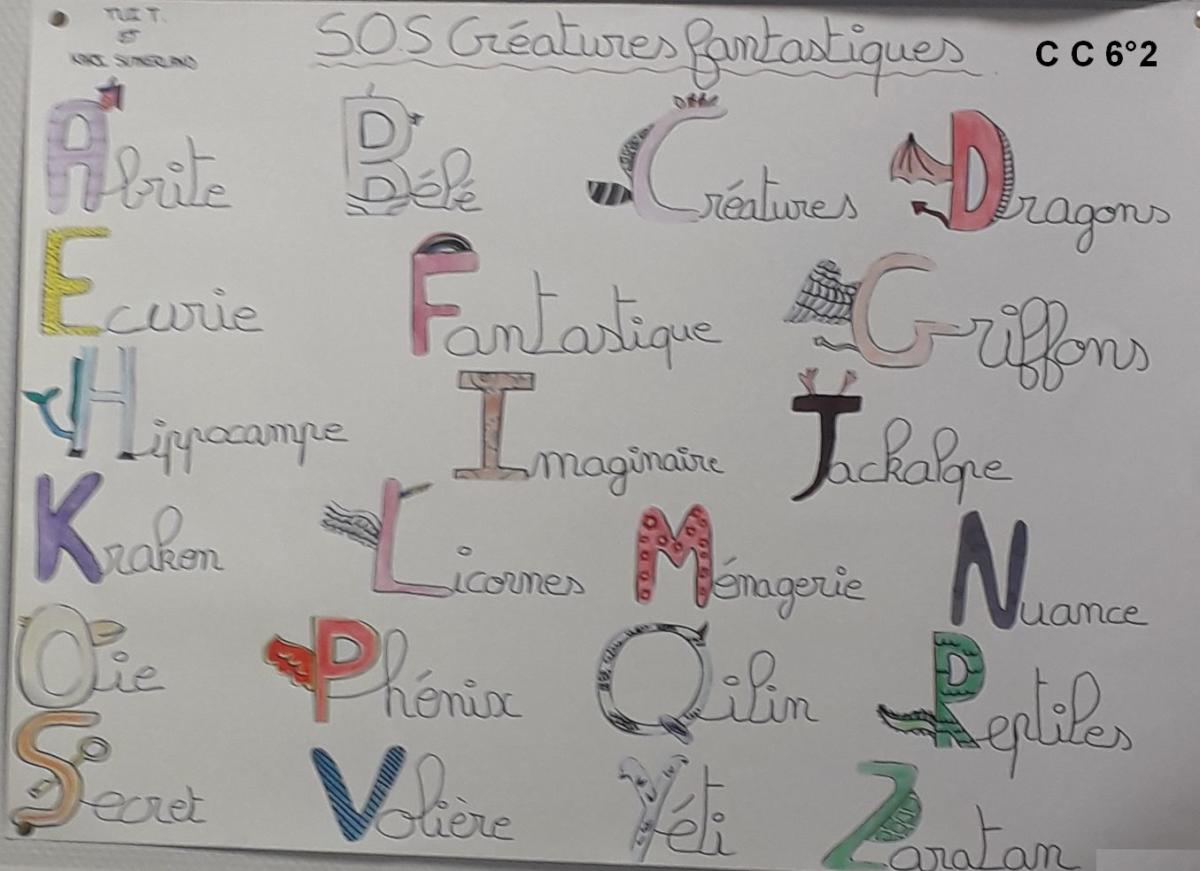 TUI T.
ET
KARI SUTHERLAND
S.O.S Créatures fantastiques
C C 6°2
Abrite Bébé Créatures Dragons
Ecurie Fantastique Griffons
Hippocampe Imaginaire Jackalope
Kraken Licornes Ménagerie Nuance
Oie Phénix Qilin Reptiles
Secret Volière Yéti Zaratan